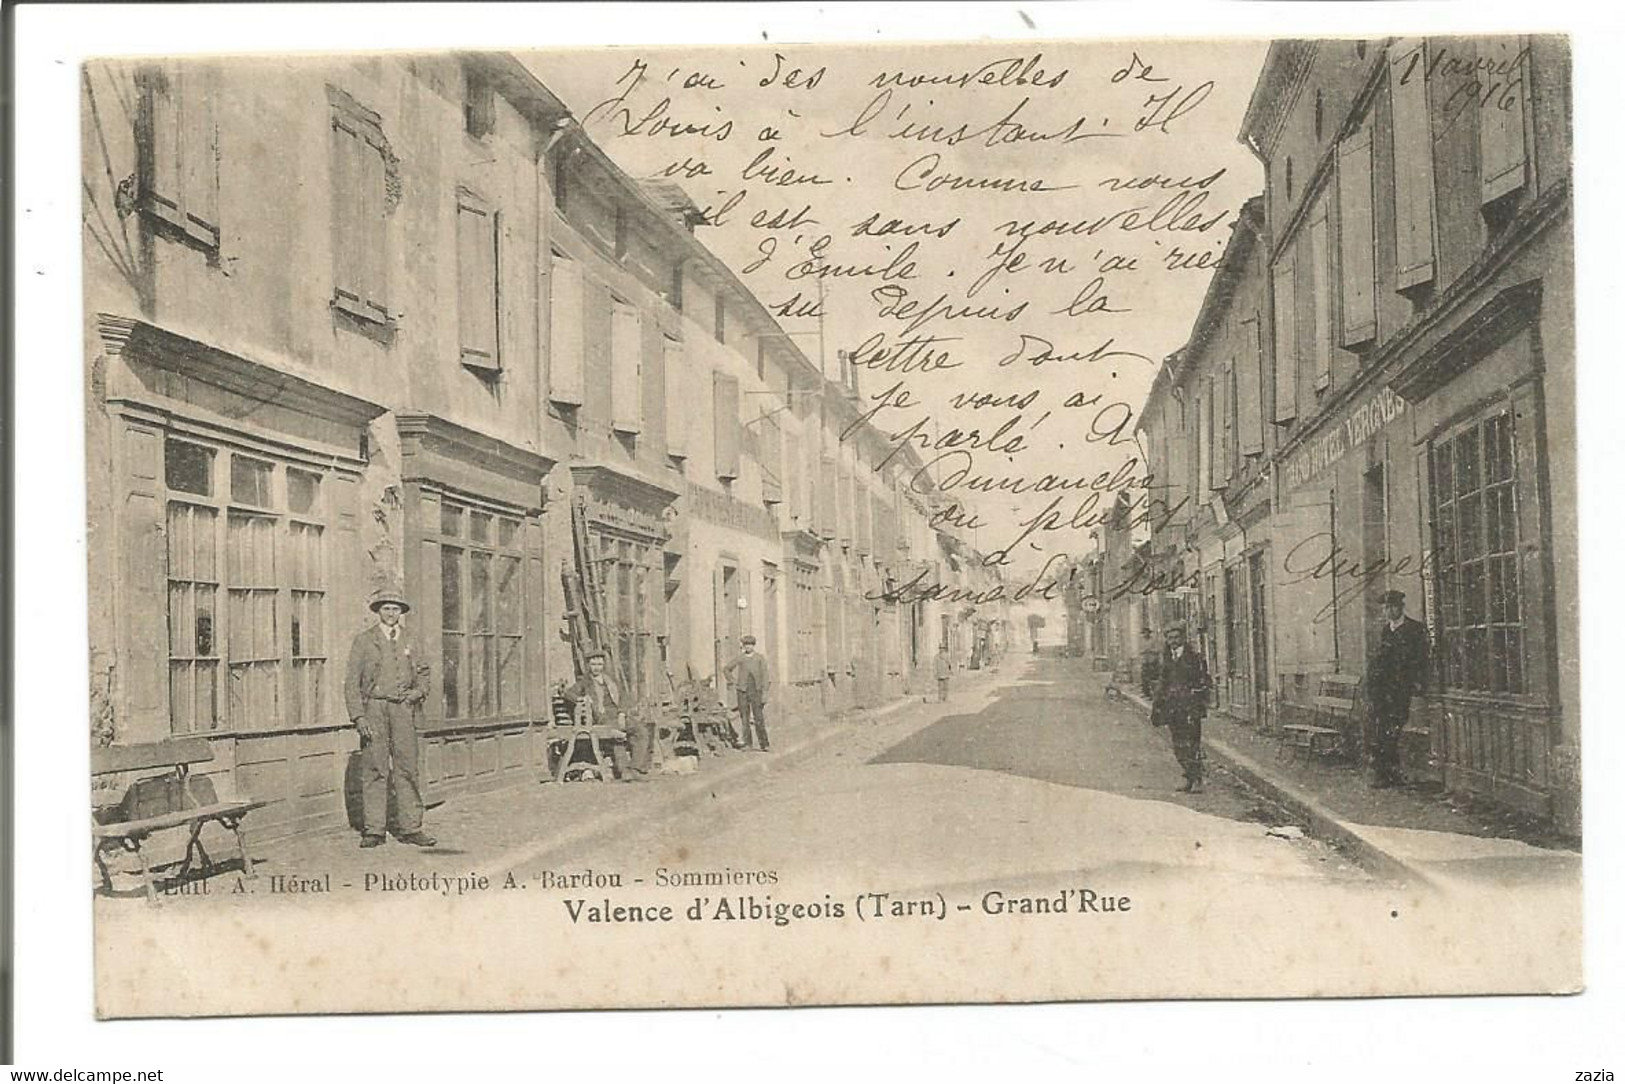 11 avril
1916
J'ai des nouvelles de
Louis à l'instant. Il
va bien. Comme vous
il est sans nouvelles
d'Emile. Je n'ai rien
su depuis la
lettre dont
je vous ai
parlé. A
Dimanche
ou plutôt
à
samedi soir
Angel
HOTEL VERGNES
Edit A. Héral - Phototypie A. Bardou - Sommieres
Valence d'Albigeois (Tarn) - Grand'Rue
delcampe.net
zazia